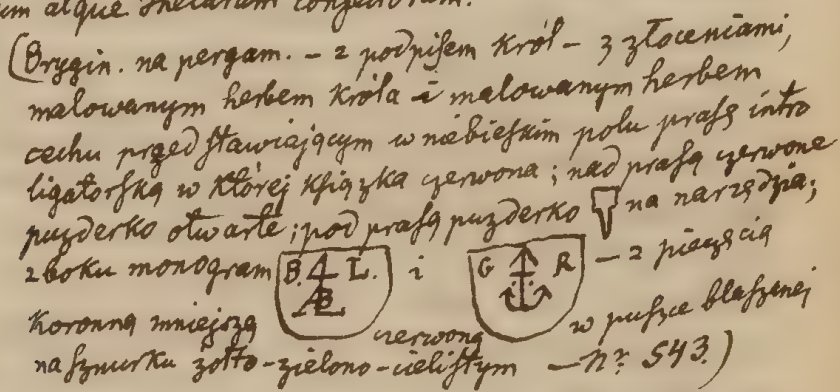 um atque
(Orygin. na pergam. – z podpisem król – z złoceniami,
malowanym herbem króla i malowanym herbem
cechu przedstawiającym w niebieskim polu prasę intro
ligatorską w której książka czerwona; nad prasą czerwone
puzderko otwarte; pod prasą puzderko na narzędzia;
z boku monogram B. L. i G R – z pieczęcią
AB
koronną mniejszą czerwoną w puszce blaszanej
na sznurku żółto-zielono-cielistym – nr. 543.)